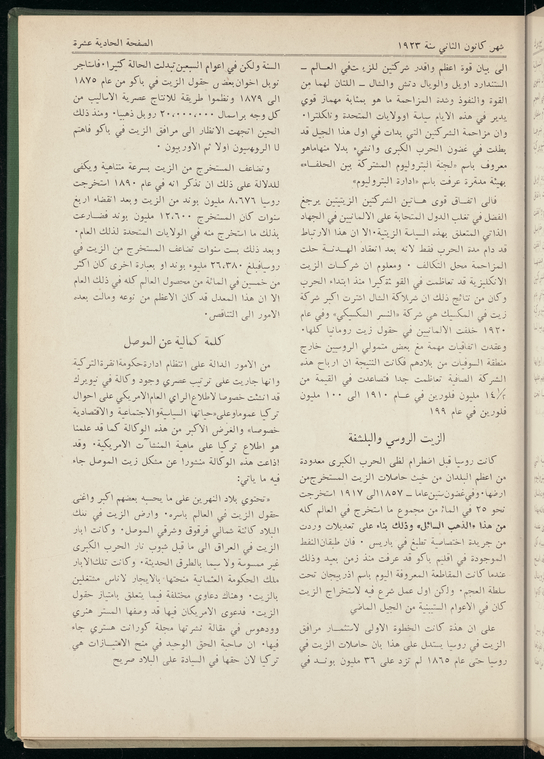 شهر كانون الثاني سنة ١٩٢٣
الصفحة الحادية عشرة
الى بيان قوة اعظم واقدر شركتين للزيت في العالم —
الستندارد اويل والرويال دتش والشال — اللتان لهما من
القوة والنفوذ وشدة المزاحمة ما هو بمثابة مهماز قوي
يدير في هذه الايام سياسة الولايات المتحدة وانكلترا.
وان مزاحمة الشركتين التي بدأت في اول هذا الجيل قد
بطلت في غضون الحرب الكبرى وانشئ بدلا منها ما هو
معروف باسم «لجنة البتروليوم المشتركة بين الحلفاء»
بهيئة مصغرة عرفت باسم «ادارة البتروليوم»
فالى اتفاق قوى هاتين الشركتين الزيتيتين يرجع
الفضل في تغلب الدول المتحابة على الالمانيين في الجهاد
الذاتي المتعلق بهذه السياسة الزيتية. الا ان هذا الارتباط
قد دام مدة الحرب فقط لانه بعد انعقاد الهدنة حلت
المزاحمة محل التكالف. ومعلوم ان شركات الزيت
الانكليزية قد تعاظمت في القوة كثيرا منذ ابتداء الحرب
وكان من نتائج ذلك ان شركة الشال اشترت اكبر شركة
زيت في المكسيك هي شركة «النسر المكسيكي» وفي عام
١٩٢٠ خلفت الالمانيين في حقول زيت رومانيا كلها.
وعقدت اتفاقيات مهمة مع بعض متمولي الروسيين خارج
منطقة السوفيات من بلادهم فكانت النتيجة ان ارباح هذه
الشركة الصافية تعاظمت جدا فتصاعدت في القيمة من
١٤ مليون فلورين في عام ١٩١٠ الى ١٠٠ مليون
فلورين في عام ١٩٩
الزيت الروسي والبلشفة
كانت روسيا قبل اضطرام لظى الحرب الكبرى معدودة
من اعظم البلدان من حيث حاصلات الزيت المستخرج من
ارضها. وفي غضون سني عام — ١٨٥٧ الى ١٩١٧ استخرجت
نحو ٢٥ في المائة من مجموع ما استخرج في العالم كله
من هذا «الذهب السائل» وذلك بناء على تعديلات وردت
من جريدة اختصاصية تطبع في باريس. فان طبقان النفط
الموجودة في اقليم باكو قد عرفت منذ زمن بعيد وذلك
عندما كانت المقاطعة المعروفة اليوم باسم اذربيجان تحت
سلطة العجم. ولكن اول عمل شرع فيه لاستخراج الزيت
كان في الاعوام الستينية من الجيل الماضي
على ان هذه كانت الخطوة الاولى لاستثمار مرافق
الزيت في روسيا يستدل على هذا بان حاصلات الزيت في
روسيا حتى عام ١٨٦٥ لم تزد على ٣٦ مليون بوند في
السنة ولكن في اعوام السبعين تبدلت الحالة كثيرا. فاستاجر
نوبل اخوان بعض حقول الزيت في باكو من عام ١٨٧٥
الى ١٨٧٩ ونظموا طريقة للانتاج عصرية الاساليب من
كل وجه براسمال ٢٠،٠٠٠،٠٠٠ روبل ذهبيا. ومنذ ذلك
الحين اتجهت الانظار الى مرافق الزيت في باكو فاهتم
لها الروسيون اولا ثم الاوربيون.
وتضاعف المستخرج من الزيت بسرعة متناهية ويكفى
للدلالة على ذلك ان نذكر انه في عام ١٨٩٠ استخرجت
روسيا ٨،٦٧٦ مليون بوند من الزيت وبعد انقضاء اربع
سنوات كان المستخرج ١٢،٦٠٠ مليون بوند فضارعت
بذلك ما استخرج منه في الولايات المتحدة لذلك العام.
وبعد ذلك بست سنوات تضاعف المستخرج من الزيت في
روسيا فبلغ ٢٦،٣٨٠ مليون بوند او بعبارة اخرى كان اكثر
من خمسين في المائة من محصول العالم كله في ذلك العام
الا ان هذا المعدل قد كان الاعظم من نوعه ومالت بعده
الامور الى التناقص.
كلمة كمالية عن الموصل
من الامور الدالة على انتظام ادارة حكومة انقرة التركية
وانها جاريت على ترتيب عصري وجود وكالة في نيويرك
قد انشئت خصوصا لاطلاع الراي العام الامريكي على احوال
تركيا عموما وعلى حياتها السياسية والاجتماعية والاقتصادية
خصوصا، والغرض الاكبر من هذه الوكالة كما قد علمنا
هو اطلاع تركيا على ماهية المنشآت الامريكية. وقد
اذاعت هذه الوكالة منشورا عن مشكل زيت الموصل جاء
فيه ما ياتي:
«تحتوي بلاد النهرين على ما يحسبه بعضهم اكبر واغنى
حقول الزيت في العالم باسره. وارض الزيت في تلك
البلاد كائنة شمالي قرقوق وشرقي الموصل. وكانت ابار
الزيت في العراق الى ما قبل شبوب نار الحرب الكبرى
غير ممسوسة ولا سيما بالطرق الحديثة. وكانت تلك الابار
ملك الحكومة العثمانية منحتها بالايجار لاناس مشتغلين
بالزيت. وهناك دعاوي مختلفة فيما يتعلق بامتياز حقول
الزيت. فدعوى الامريكان فيها قد وصفها المستر هنري
وودهوس في مقالة نشرتها مجلة كورانت هستري جاء
فيها. ان صاحبة الحق الوحيد في منح الامتيازات هي
تركيا لان حقها في السيادة على البلاد صريح